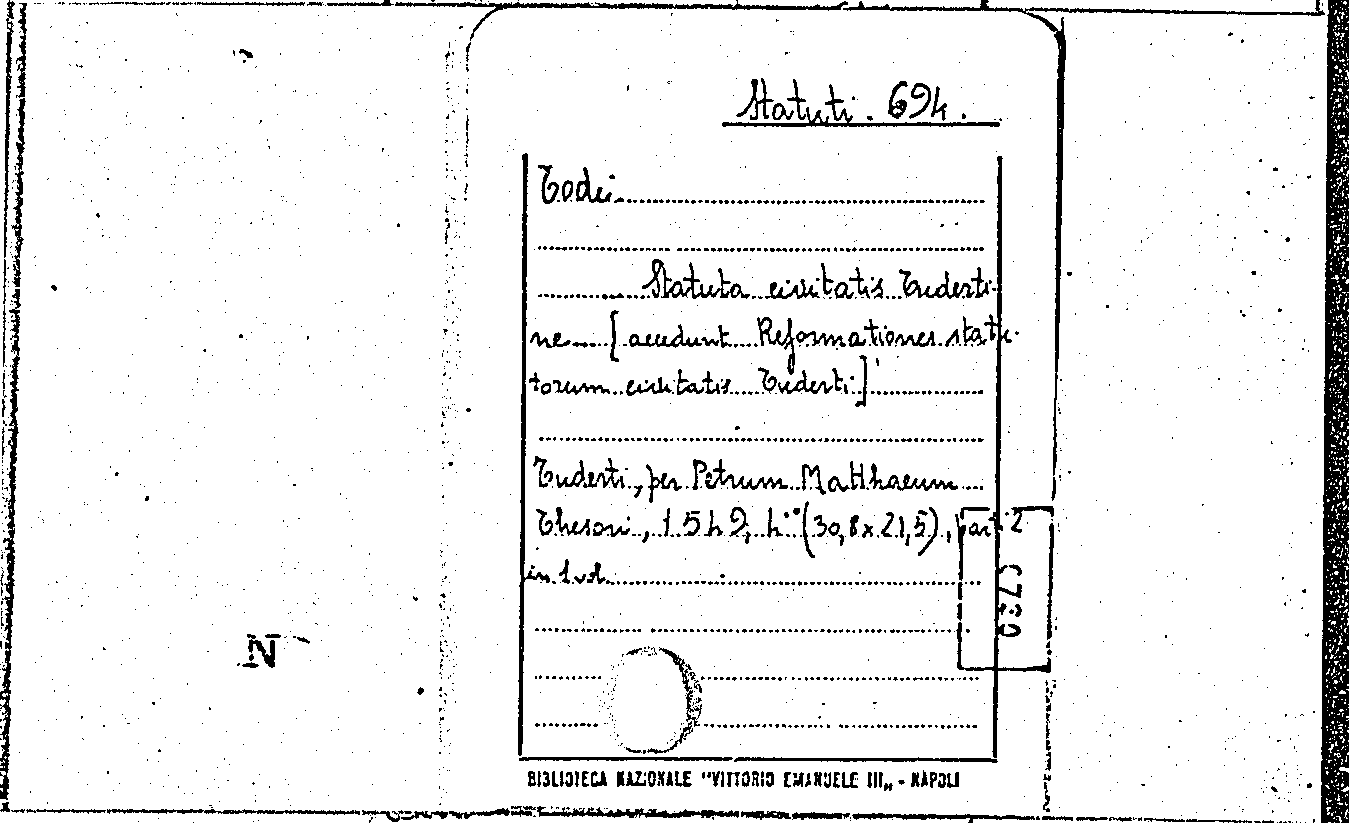 Statuti. 694.
Todi.
Statuta civitatis Tuderti-
ne [accedunt Reformationes statu-
torum civitatis Tuderti]
Tuderti, per Petrum Matthaeum
Thesori, 1549, 4° (30,8x21,5), part. 2
in 1 vol.
N
BIBLIOTECA NAZIONALE "VITTORIO EMANUELE III„ - NAPOLI